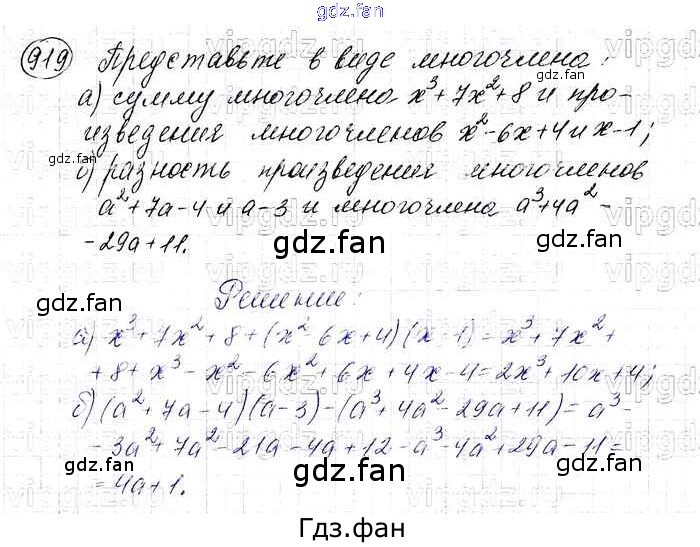 gdz.fan
919 Представьте в виде многочлена:
gdz.fan
а) сумму многочлена x³+7x²+8 и про-
изведения многочленов x²-6x+4 и x-1;
б) разность произведения многочленов
a²+7a-4 и a-3 и многочлена a³+4a²-
-29a+11.
gdz.fan
gdz.fan
Решение:
gdz.fan
а) x³+7x²+8+(x²-6x+4)(x-1)=x³+7x²+
+8+x³-x²-6x²+6x+4x-4=2x³+10x+4;
б) (a²+7a-4)(a-3)-(a³+4a²-29a+11)=a³-
-3a²+7a²-21a-4a+12-a³-4a²+29a-11=
=4a+1.
gdz.fan
gdz.fan
Гдз.фан